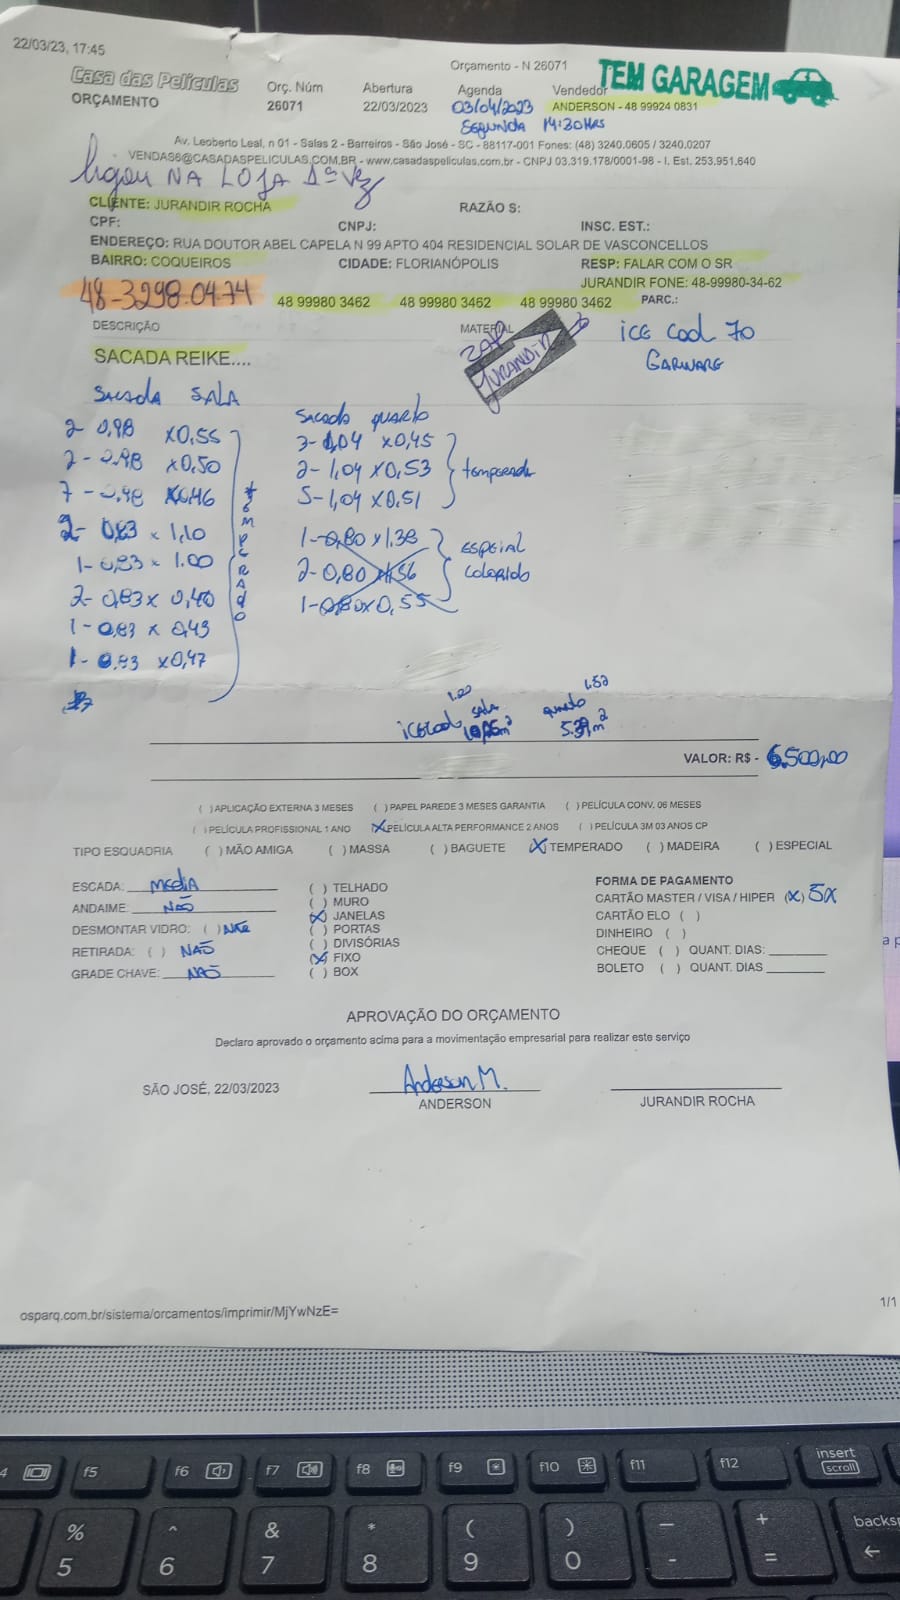 22/03/23, 17:45
Orçamento - N 26071
TEM GARAGEM
Casa das Películas
ORÇAMENTO
Orç. Núm
26071
Abertura
22/03/2023
Agenda
03/04/2023
SEGUNDA 14:30HRS
Vendedor
ANDERSON - 48 99924 0831
Av. Leoberto Leal, n 01 - Salas 2 - Barreiros - São José - SC - 88117-001 Fones: (48) 3240.0605 / 3240.0207
VENDAS6@CASADASPELICULAS.COM.BR - www.casadaspeliculas.com.br - CNPJ 03.319.178/0001-98 - I. Est. 253.951.640
ligou NA LOJA 1ª vez
CLIENTE: JURANDIR ROCHA
RAZÃO S:
CPF:
CNPJ:
INSC. EST.:
ENDEREÇO: RUA DOUTOR ABEL CAPELA N 99 APTO 404 RESIDENCIAL SOLAR DE VASCONCELLOS
BAIRRO: COQUEIROS
CIDADE: FLORIANÓPOLIS
RESP: FALAR COM O SR
JURANDIR FONE: 48-99980-34-62
48-3298.0474
48 99980 3462 48 99980 3462 48 99980 3462
PARC.:
DESCRIÇÃO
MATERIAL
ZAP
JURANDIR
ICE Cool 70
GARWARE
SACADA REIKE....
SACADA SALA
2- 0,98 x0,55
2- 0,98 x0,50
7- 0,98 x0,46
2- 0,83 x 1,10
1- 0,83 x 1.00
2- 0,83 x 0,40
1- 0,83 x 0,43
1- 0,83 x0,47
TEMPERADO
SACADA QUARTO
3- 1,04 x0,45
2- 1,04 x0,53
5- 1,04 x0,51
temperado
1- 0,80 x 1.38
2- 0,80 x1,56
1- 0,80x0,55
ESPECIAL
COLORIDO
1.52
ICECool sala
quarto
VALOR: R$ - 6.500,00
( ) APLICAÇÃO EXTERNA 3 MESES ( ) PAPEL PAREDE 3 MESES GARANTIA ( ) PELÍCULA CONV. 06 MESES
( ) PELÍCULA PROFISSIONAL 1 ANO (X) PELÍCULA ALTA PERFORMANCE 2 ANOS ( ) PELÍCULA 3M 03 ANOS CP
TIPO ESQUADRIA ( ) MÃO AMIGA ( ) MASSA ( ) BAGUETE (X) TEMPERADO ( ) MADEIRA ( ) ESPECIAL
ESCADA: MEDIA
ANDAIME: NÃO
DESMONTAR VIDRO: ( ) NÃO
RETIRADA: ( ) NAÕ
GRADE CHAVE: NAÕ
( ) TELHADO
( ) MURO
(X) JANELAS
( ) PORTAS
( ) DIVISÓRIAS
(X) FIXO
( ) BOX
FORMA DE PAGAMENTO
CARTÃO MASTER / VISA / HIPER (X) 5X
CARTÃO ELO ( )
DINHEIRO ( )
CHEQUE ( ) QUANT. DIAS:
BOLETO ( ) QUANT. DIAS
APROVAÇÃO DO ORÇAMENTO
Declaro aprovado o orçamento acima para a movimentação empresarial para realizar este serviço
SÃO JOSÉ, 22/03/2023
Anderson M.
ANDERSON
JURANDIR ROCHA
osparq.com.br/sistema/orcamentos/imprimir/MjYwNzE=
1/1
4 f5 f6 f7 f8 f9 f10 f11 f12 insert
scroll
% ^ & * ( ) — + backsp
5 6 7 8 9 0 - =